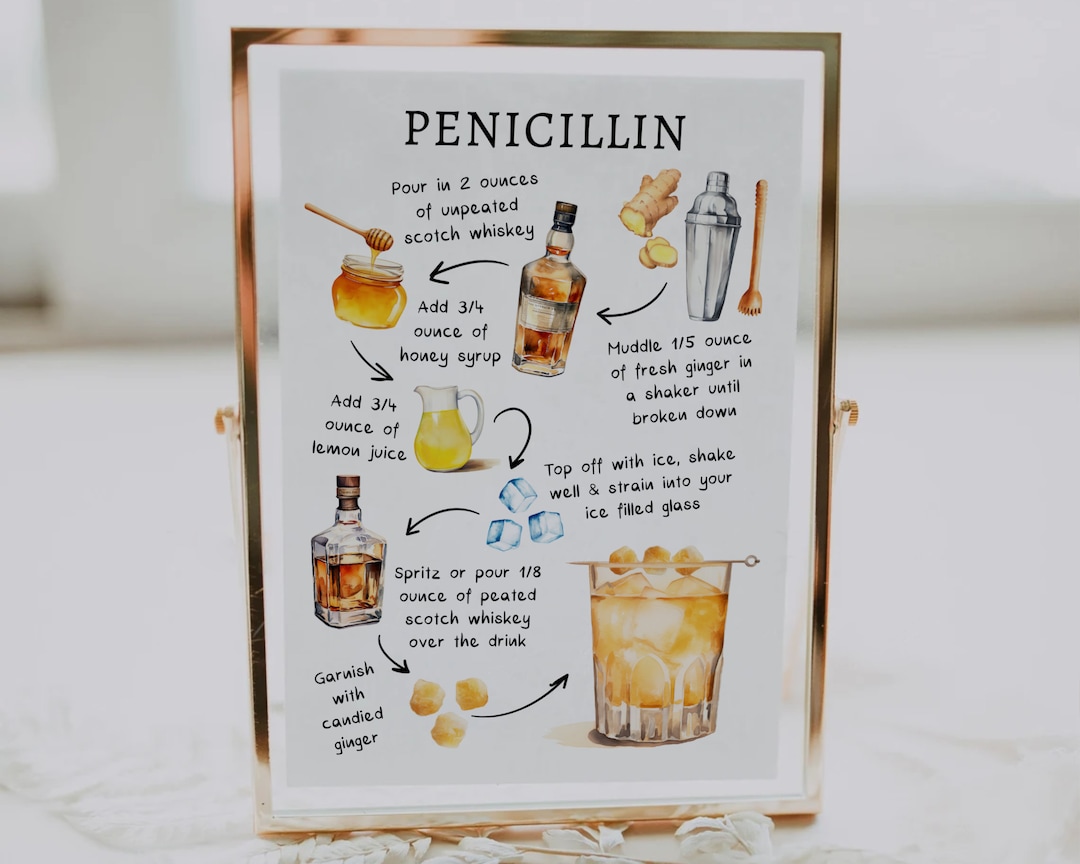 PENICILLIN
Muddle 1/5 ounce
of fresh ginger in
a shaker until
broken down
Pour in 2 ounces
of unpeated
scotch whiskey
Add 3/4
ounce of
honey syrup
Add 3/4
ounce of
lemon juice
Top off with ice, shake
well & strain into your
ice filled glass
Spritz or pour 1/8
ounce of peated
scotch whiskey
over the drink
Garnish
with
candied
ginger